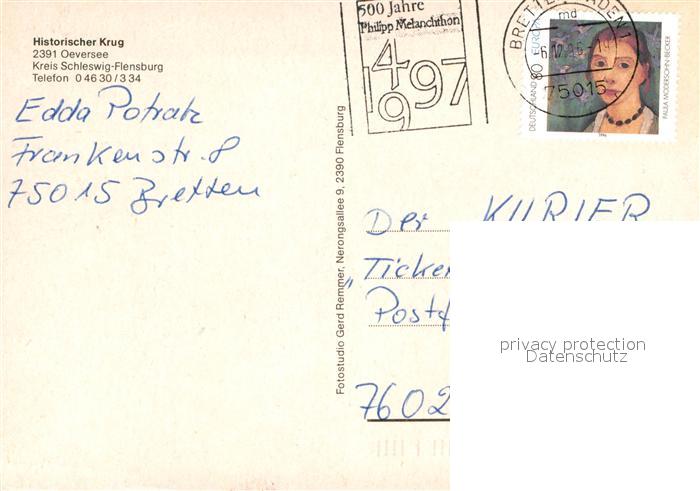 Historischer Krug
2391 Oeversee
Kreis Schleswig-Flensburg
Telefon 0 46 30 / 3 34
Edda Potratz
Frankenstr. 8
75015 Bretten
Fotostudio Gerd Remmer, Nerongsallee 9, 2390 Flensburg
500 Jahre
Philipp Melanchthon
1497
97
BRETTEN, BADEN 1
md
75015
DEUTSCHLAND 80 EUROPA
PAULA MODERSOHN-BECKER
1996
Der KURIER
"Ticker
Postf
7602
privacy protection
Datenschutz